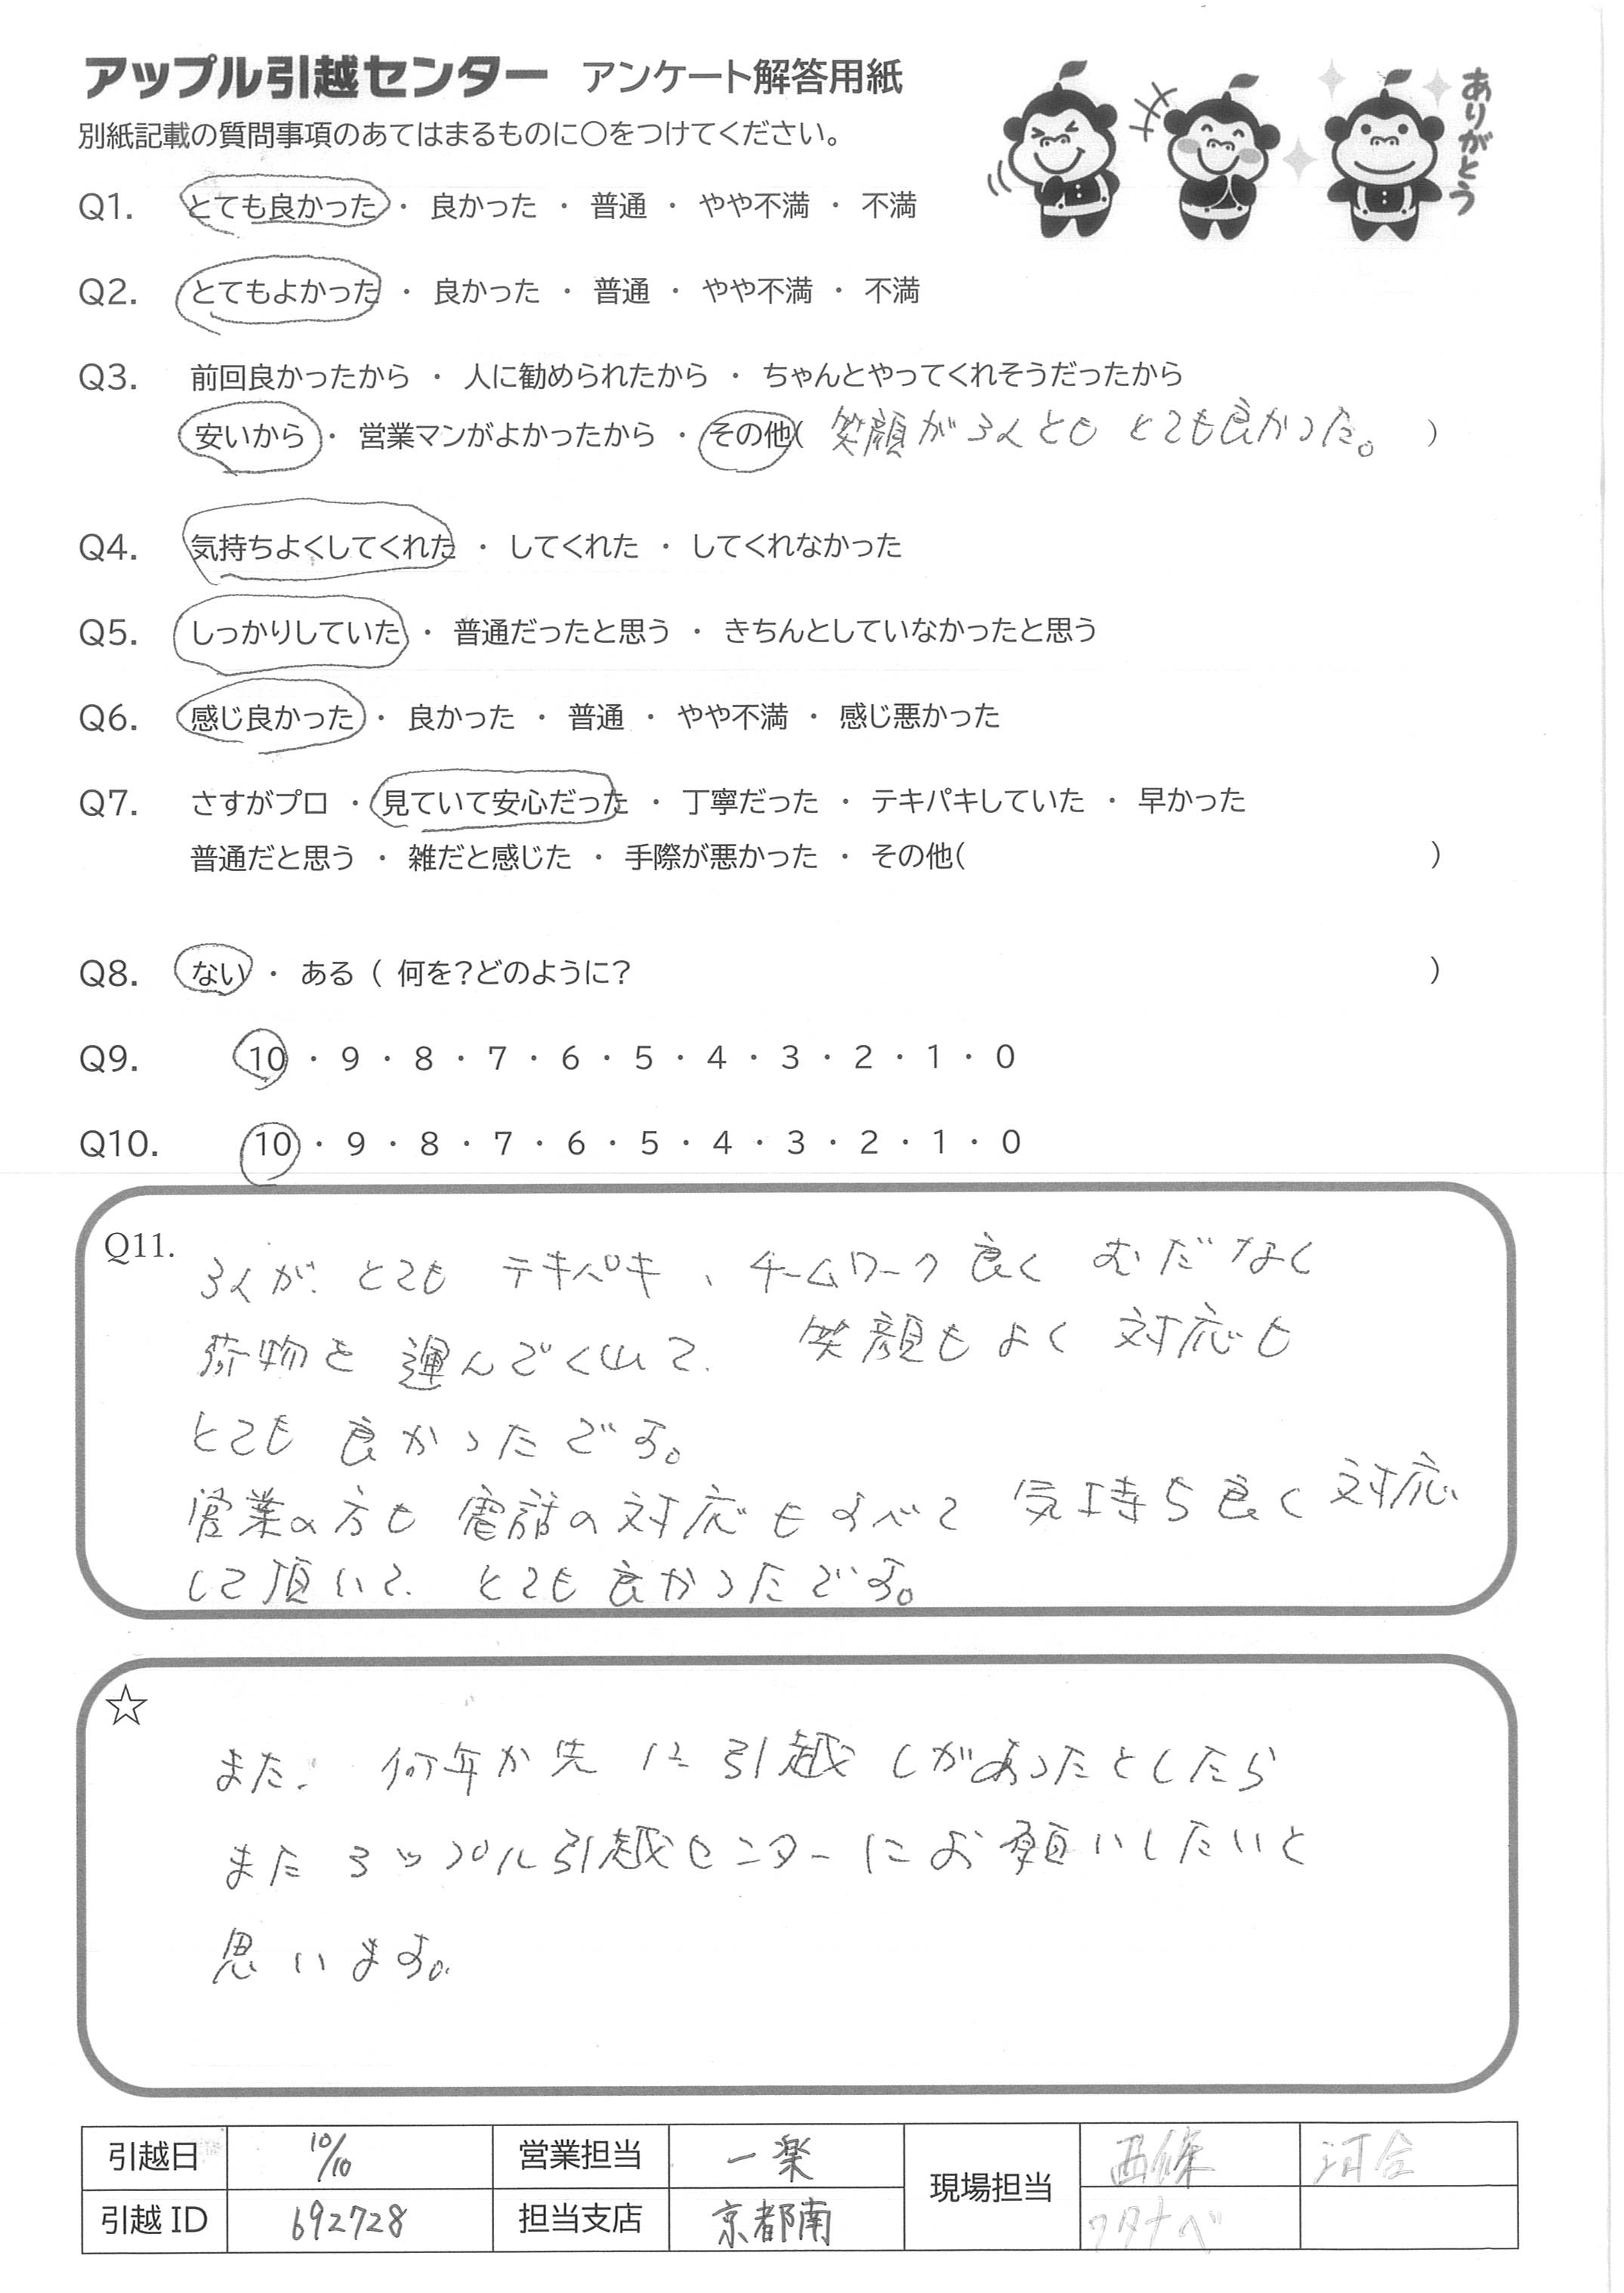 アップル引越センター アンケート解答用紙
別紙記載の質問事項のあてはまるものに〇をつけてください。
ありがとう
Q1. とても良かった ・ 良かった ・ 普通 ・ やや不満 ・ 不満
Q2. とてもよかった ・ 良かった ・ 普通 ・ やや不満 ・ 不満
Q3. 前回良かったから ・ 人に勧められたから ・ ちゃんとやってくれそうだったから
安いから ・ 営業マンがよかったから ・ その他( 笑顔が3人とも とても良かった。 )
Q4. 気持ちよくしてくれた ・ してくれた ・ してくれなかった
Q5. しっかりしていた ・ 普通だったと思う ・ きちんとしていなかったと思う
Q6. 感じ良かった ・ 良かった ・ 普通 ・ やや不満 ・ 感じ悪かった
Q7. さすがプロ ・ 見ていて安心だった ・ 丁寧だった ・ テキパキしていた ・ 早かった
普通だと思う ・ 雑だと感じた ・ 手際が悪かった ・ その他( )
Q8. ない ・ ある ( 何を?どのように? )
Q9. 10 ・ 9 ・ 8 ・ 7 ・ 6 ・ 5 ・ 4 ・ 3 ・ 2 ・ 1 ・ 0
Q10. 10 ・ 9 ・ 8 ・ 7 ・ 6 ・ 5 ・ 4 ・ 3 ・ 2 ・ 1 ・ 0
Q11. 3人が、とても テキパキ、チームワーク 良く むだなく
荷物を 運んでくれて、 笑顔も よく 対応も
とても 良かったです。
営業の方も 電話の対応も すべて 気持ち良く 対応
して頂いて、とても 良かったです。
☆
また、何年か先に引越しがあったとしたら
また アップル引越センターにお願いしたいと
思います。
引越日 10/10 営業担当 一楽 現場担当 西條 河合
引越ID 692728 担当支店 京都南 ワタナベ